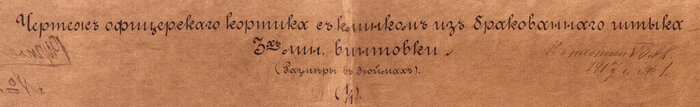 Чертежъ офицерскаго кортика съ клинкомъ изъ бракованнаго штыка
3хъ лин. винтовки.
(Размѣры въ дюймахъ).
(1/1).
1917 г. № 1.
№